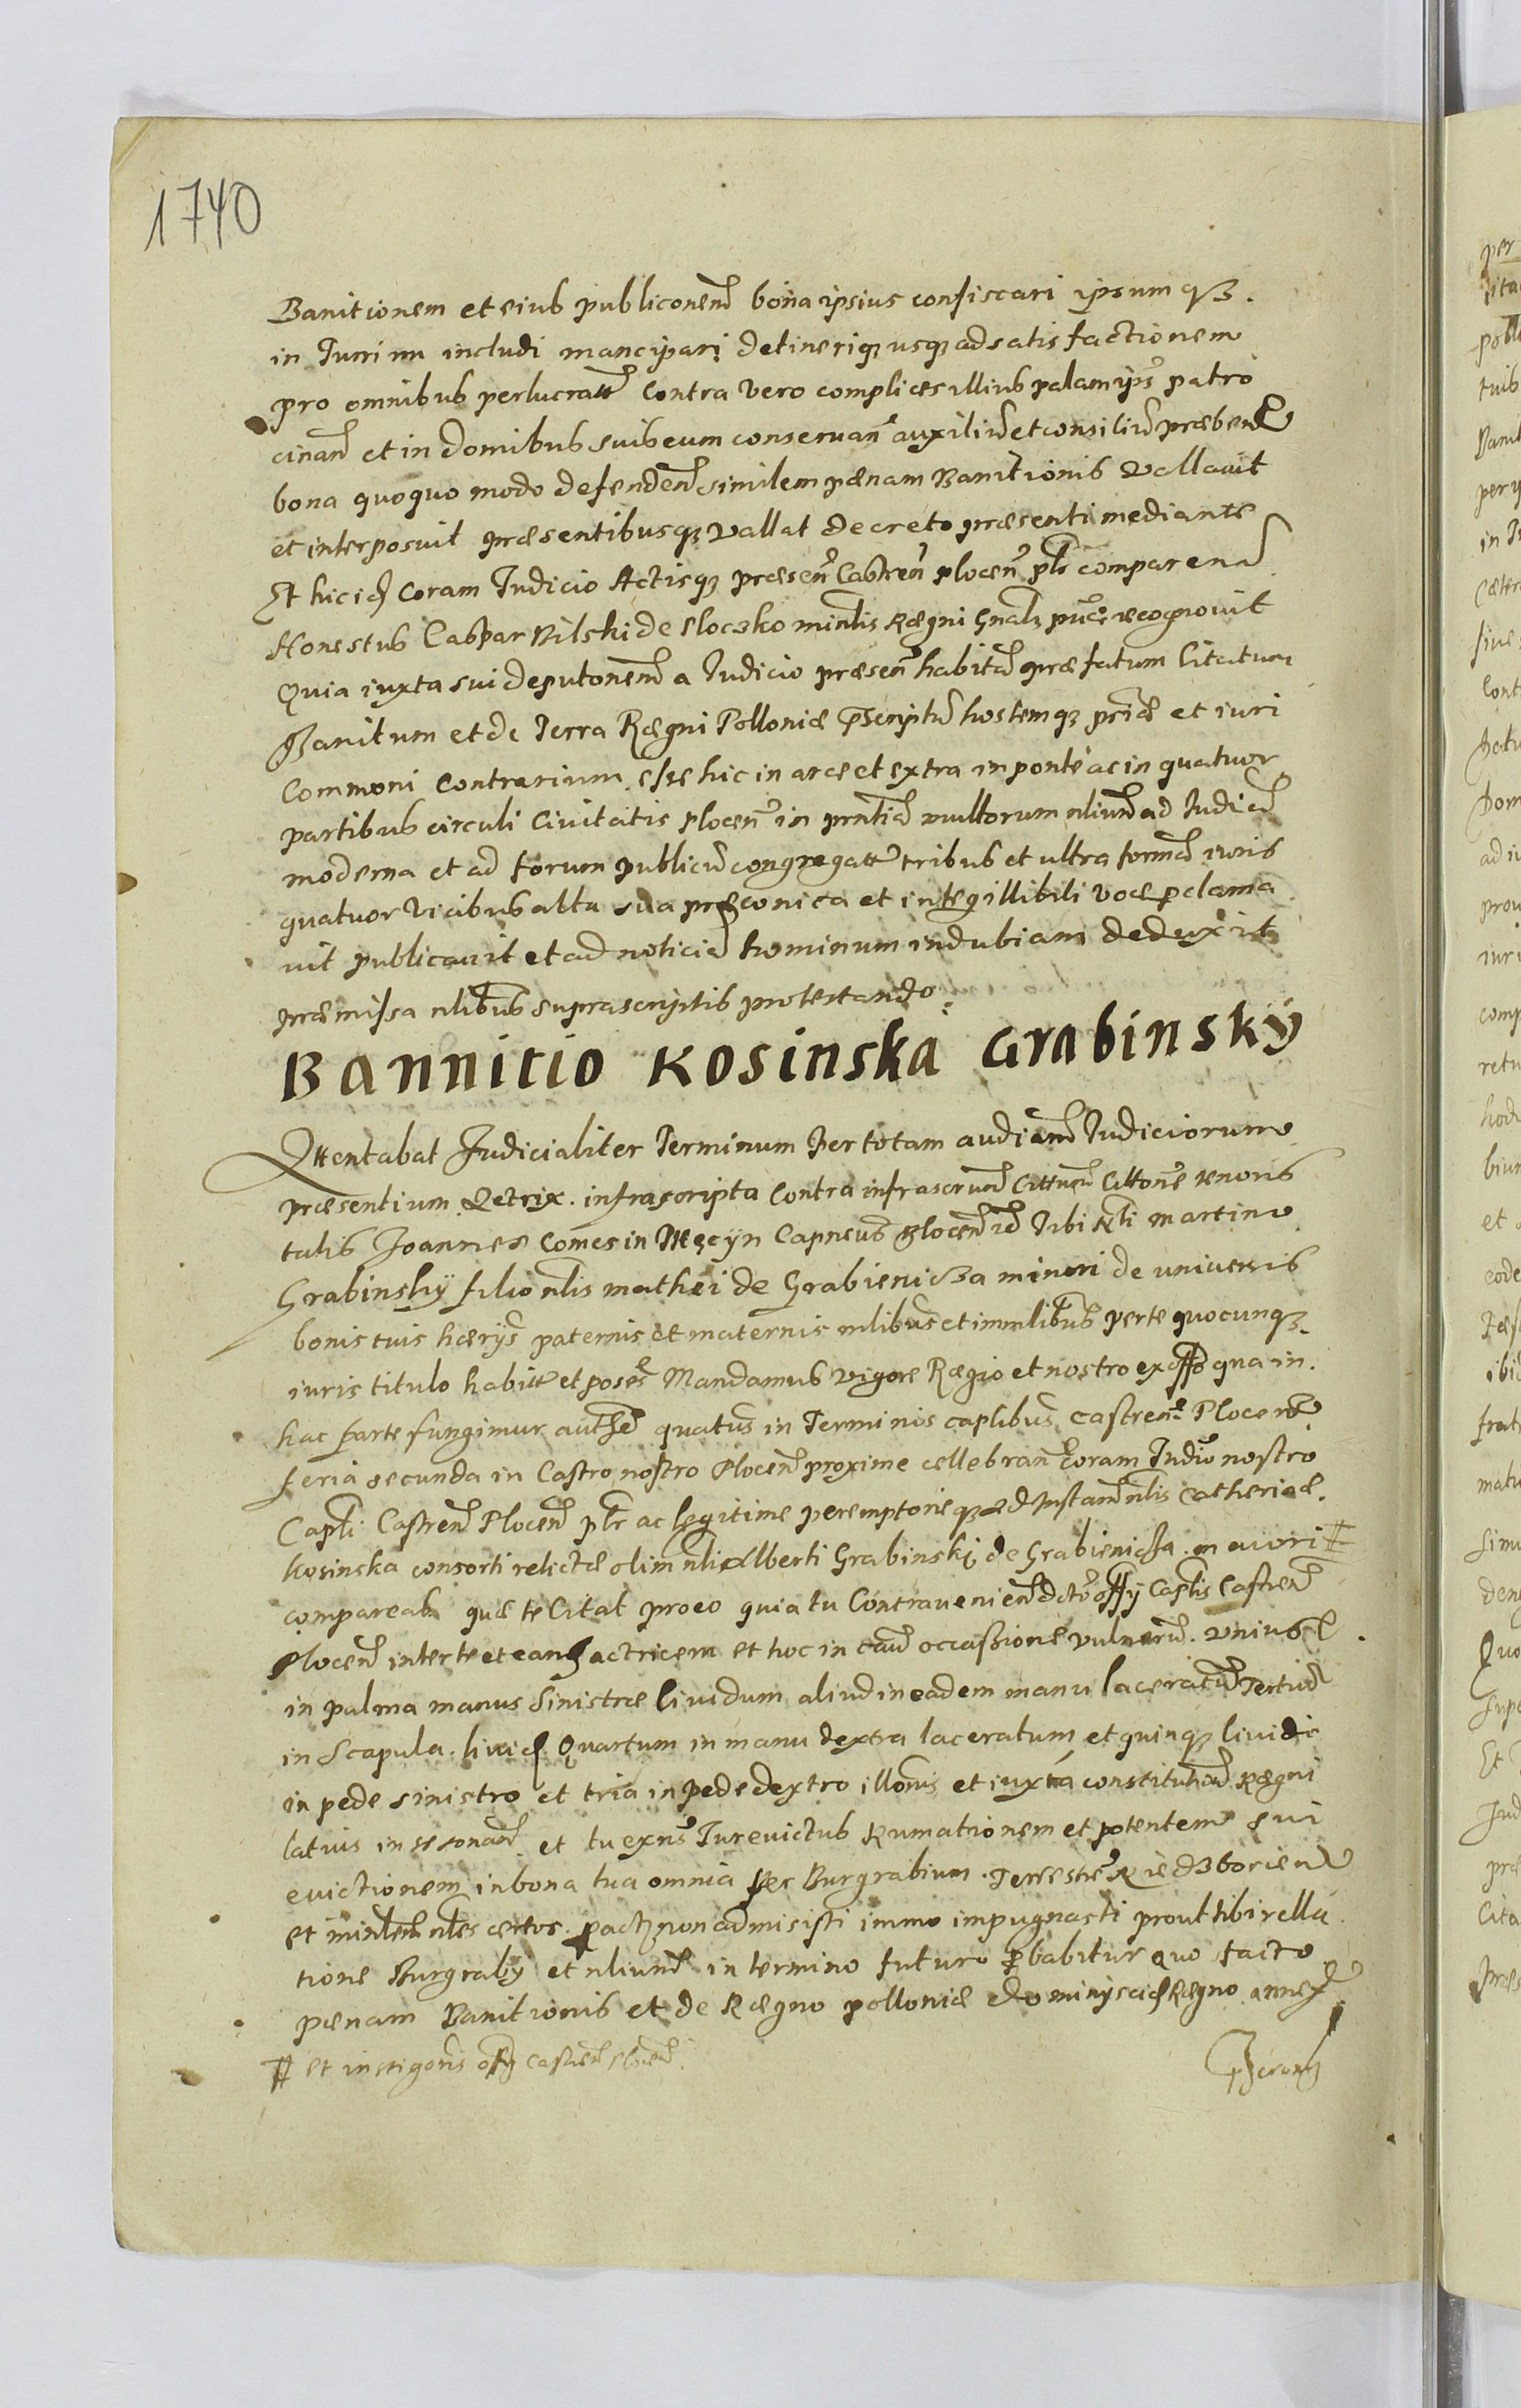 1740
Banitionem et eius publiconem bona ipsius confiscari ipsum qz.
in Turrim includi mancipari detineriqz usqz ad satisfactionem
pro omnibus perlucratt Contra vero complices illius palam ips patro
cinan et in domibus suis eum conseruan auxiliu et consiliu præben
bona quoquo modo defenden similem pænam Banitionis Vallauit
et interposuit præsentibusqz vallat decreto præsenti mediante
Et hic id Coram Iudicio Actisqz præsen Castren plocen plr comparen
Honestus Caspar Bilski de Ploczko minlis Rægni Gnalz puce recognouit
Quia iuxta sui deputonem a Iudicio præsen habitã præfatum Citatum
Banitum et de Terra Rægni Polloniæ pscriptũ hostemqz priæ et iuri
Commoni Contrarium esse hic in arce et extra in ponte ac in quatuor
partibus circuli Ciuitatis Plocen in pntia multorum nlium ad Iudicia
moderna et ad forum publicũ congregatt tribus et ultra formã iuris
quatuor Vicibus alta sua præconica et integillibili Voce pclama
uit publicauit et ad noticiã hominum indubiam deduxit
præmissa nlibus suprascriptis protestando
Bannitio Kosinska Grabinsky
Attentabat Iudicialiter Terminum Per totam audiam Iudiciorum
præsentium Actrix infrascripta Contra infrascrum Cittum Cittone tenoris
talis Joannes Comes in Capneus Plocen Tibi Nli Martino
Grabinsky filio nlis Mathei de Grabienicza minori de uniuersis
bonis tuis hærys paternis et maternis mlibus et immlibus perte quocunqz
iuris titulo habitt et poses Mandamus vigore Rægio et nostro ex offo qua in
hac parte fungimur autthe quatus in Terminis caplibus Castren Plocen
feria secunda in Castro nostro Plocen proxime cellebran coram Indio nostro
Capli Castren Plocen plr ac legitime peremptorie qz ad Instam nlis Catherinæ
Kosinska consorti relictæ olim nli Alberti Grabinski de Grabienicza minori #
compareas quæ te Citat pro eo quia tu Contrauenien dcto offy Caplis Castren
Plocen inter te et eand actricem et hoc in cau occassione vulnerũ unius
in palma manus sinistræ liuidum aliud in eadem manu laceratũ Tertiũ
in scapula liuid Quartum in manu dextra laceratum et quinqz liuidis
in pede sinistro et tria in pede dextro illonis et iuxta constitutiom Rægni
latius in se sonan et tu exns Iureuictus Rumationem et potentem sui
euictionem in bona tua omnia per Burgrabium Terrestre
et minlem nles certos pacto non admisisti immo impugnasti prout tibi rella
tione Burgraby et nlium in termino futuro pbabitur quo facto
pænam Banitionis et de Rægno polloniæ dominysqz Rægno annex
# et instigoris offy castren plocen